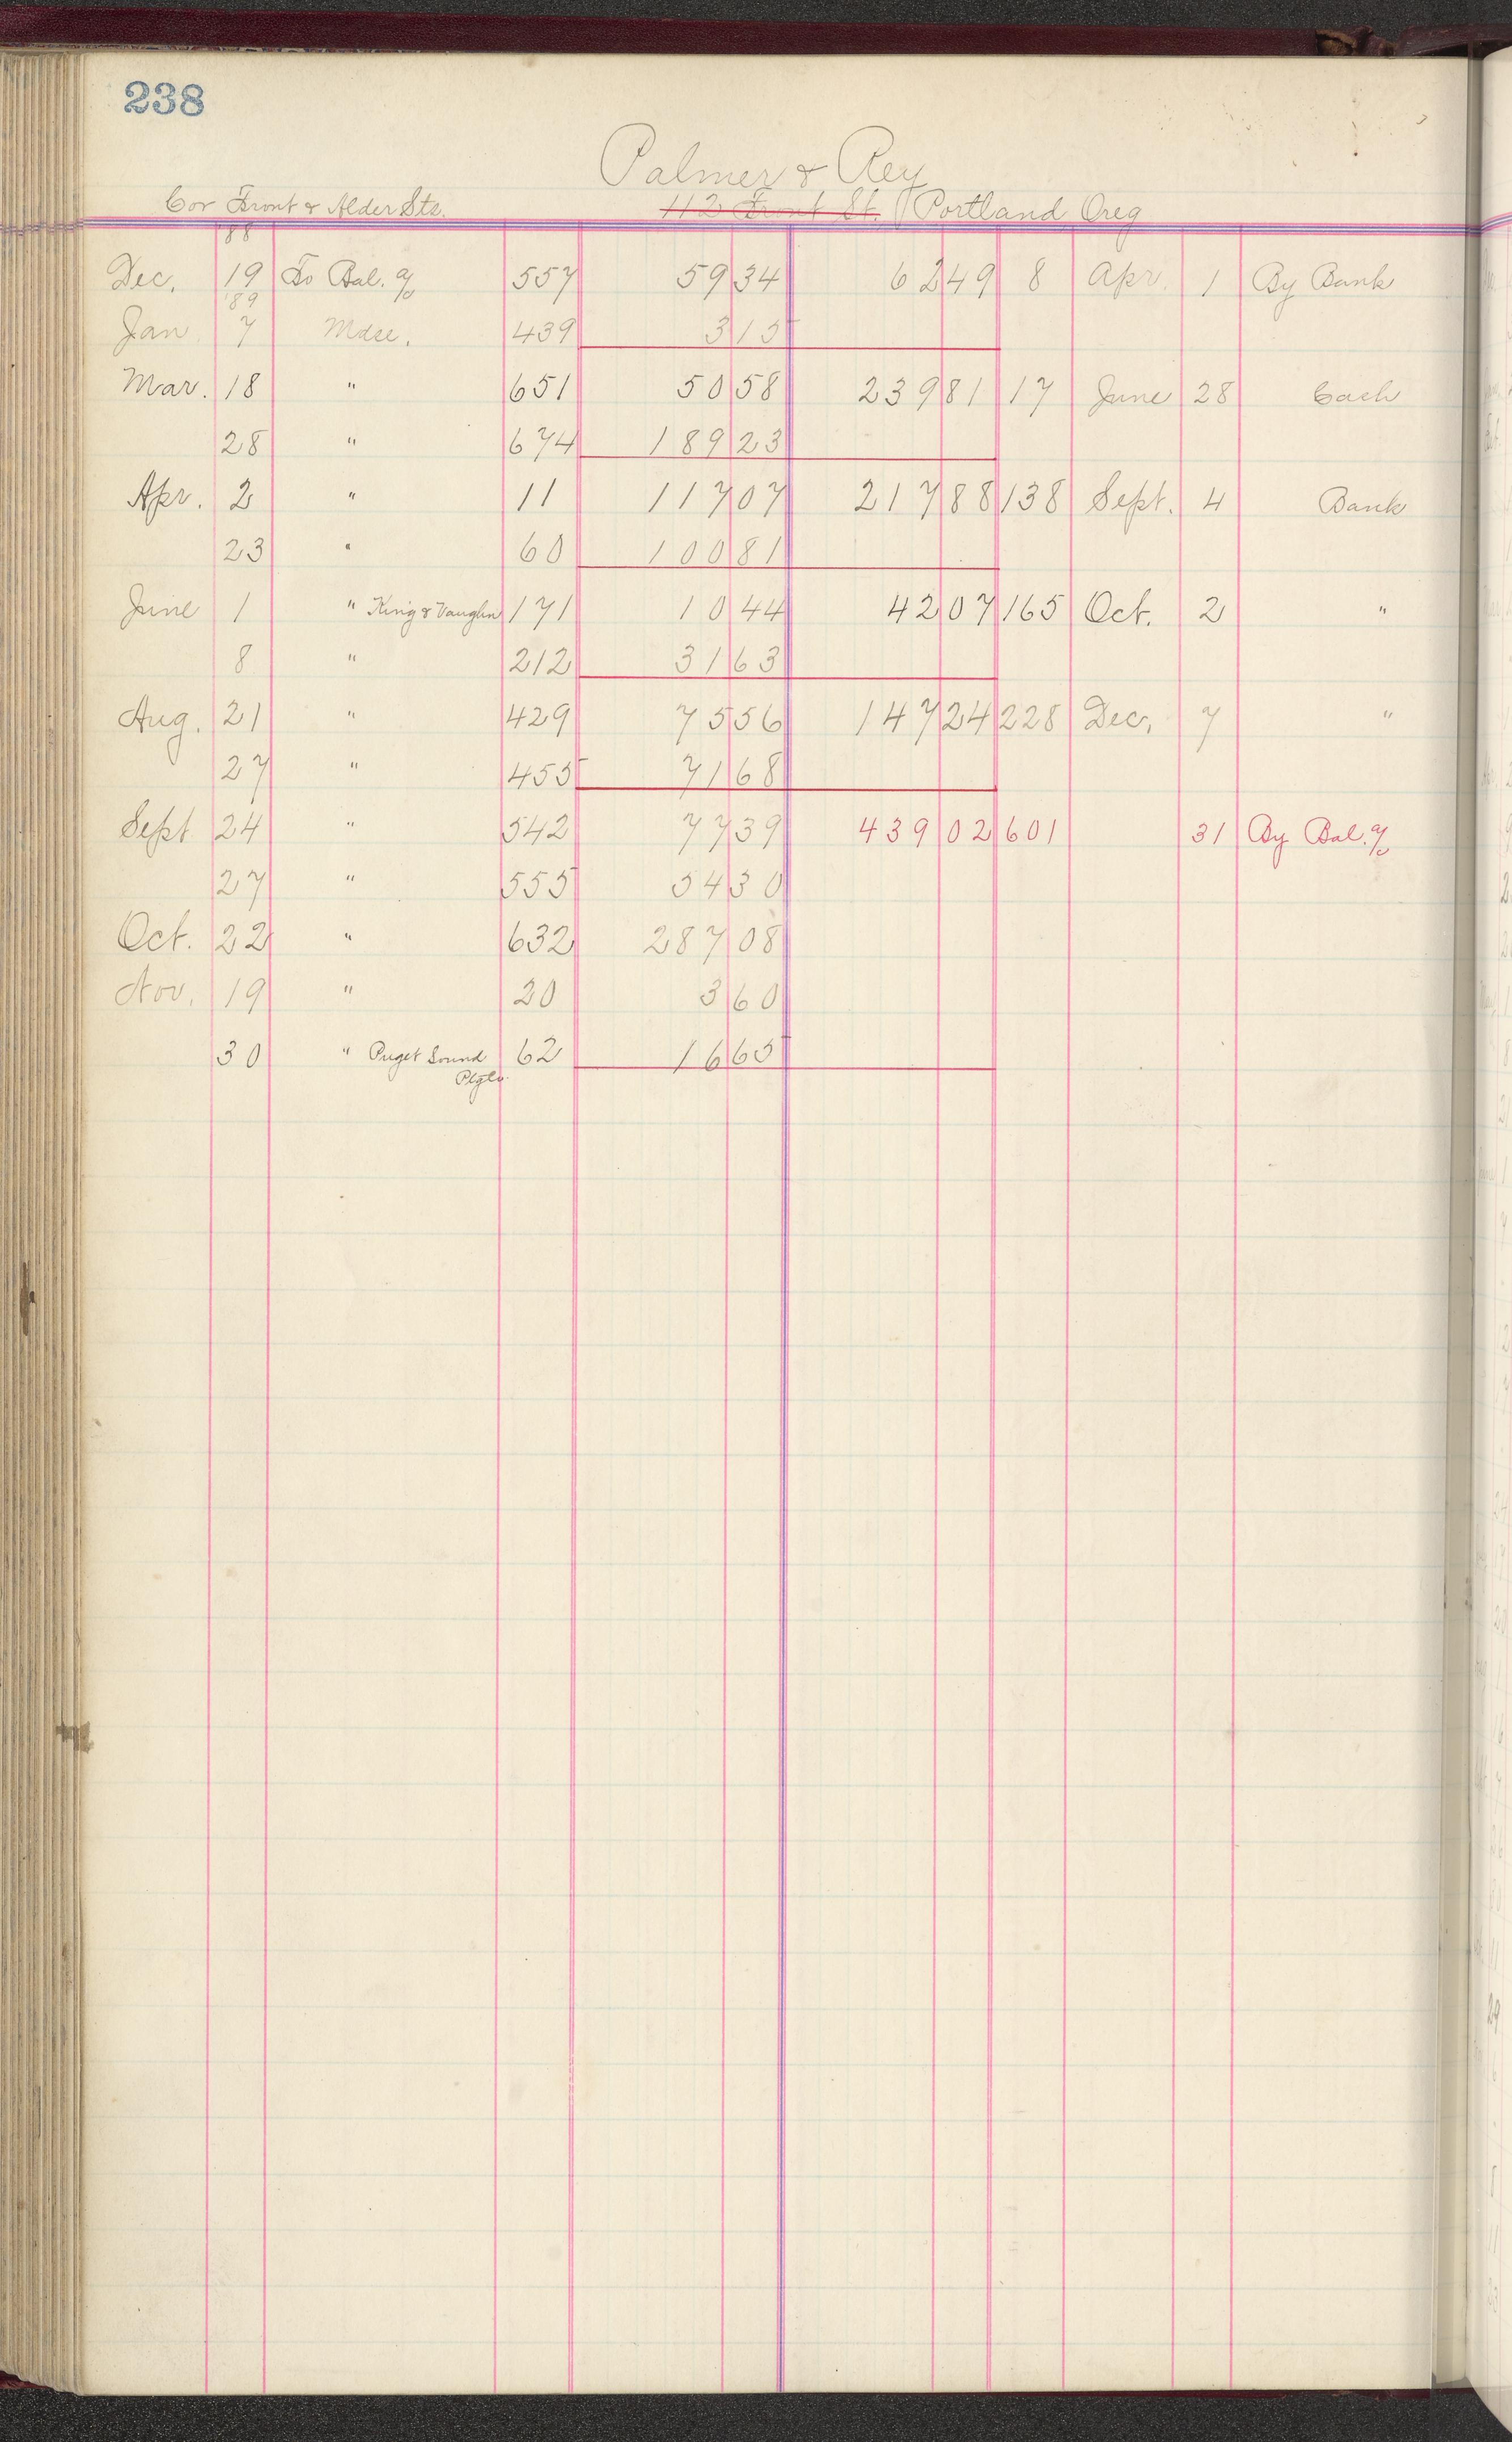 238
Palmer & Rey
Cor Front & Alder Sts. 112 Front St. Portland Oreg
'88
Dec. 19 To Bal. a/c 557 59 34 62 49 8 Apr. 1 By Bank
'89
Jan 7 Mdse. 439 3 15
Mar. 18 " 651 50 58 239 81 17 June 28 Cash
28 " 674 189 23
Apr. 2 " 11 117 07 217 88 138 Sept. 4 Bank
23 " 60 100 81
June 1 " King & Vaughn 171 10 44 42 07 165 Oct. 2 "
8 " 212 31 63
Aug. 21 " 429 75 56 147 24 228 Dec. 7 "
27 " 455 71 68
Sept. 24 " 542 77 39 439 02 601 31 By Bal. a/c
27 " 555 54 30
Oct. 22 " 632 287 08
Nov. 19 " 20 3 60
30 " Puget Sound 62 16 65